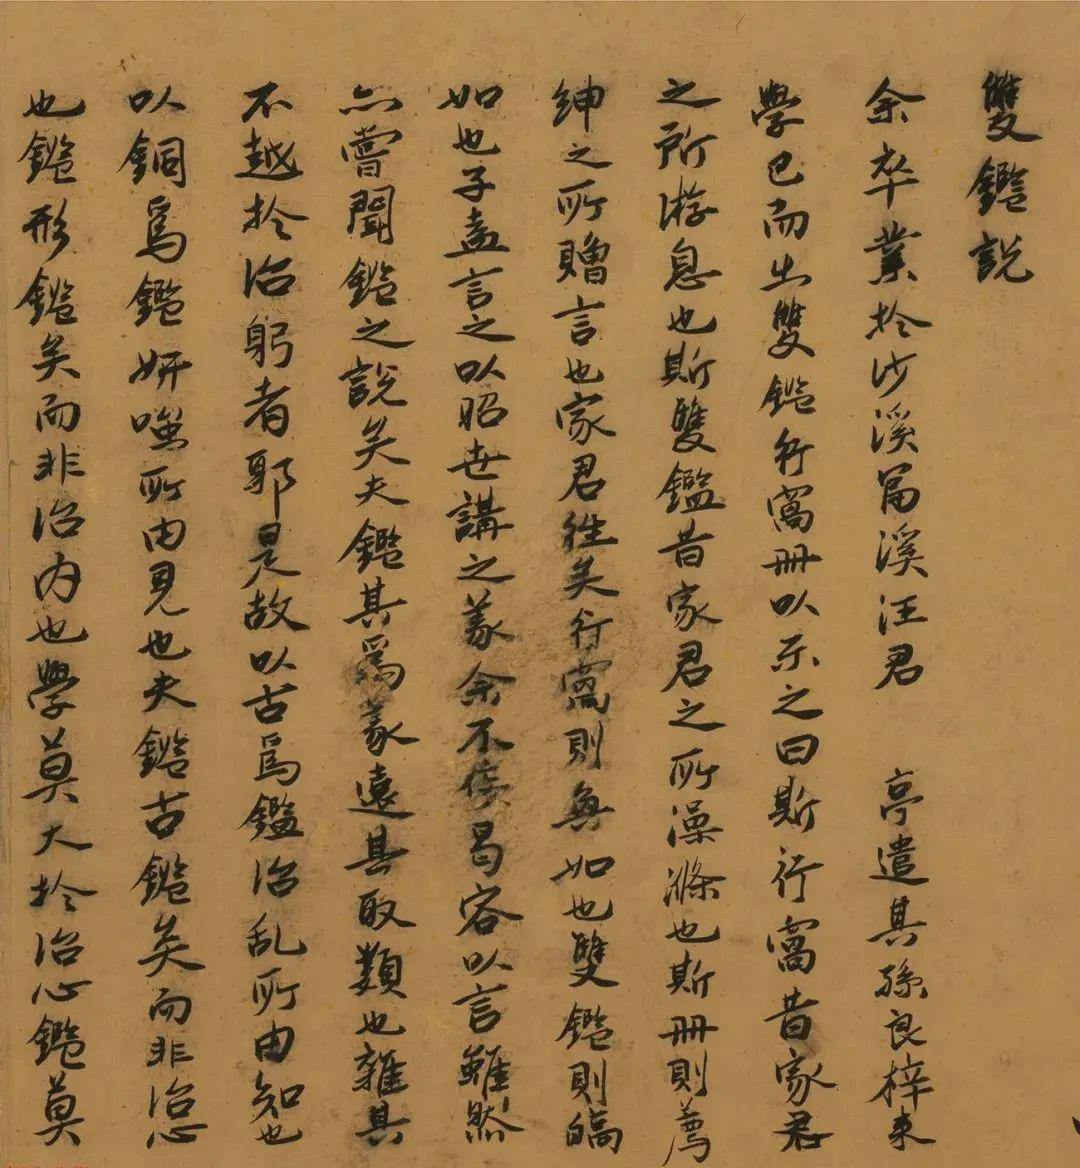 雙鑑說
余卒業於沙溪富溪汪君 亭遣其孫良梓來
學已而出雙鑑行窩冊以示之曰斯行窩昔家君
之所游息也斯雙鑑昔家君之所澡滌也斯冊則薦
紳之所贈言也家君往矣行窩則無如也雙鑑則皜
如也子盍言之以昭世講之義余不佞曷容以言雖然
亦嘗聞鑑之說矣夫鑑其為義遠其取類也雜其
不越於治躬者耶是故以古為鑑治乱所由知也
以銅為鑑妍嗤所由見也夫鑑古鑑矣而非治心
也鑑形鑑矣而非治內也學莫大於治心鑑莫